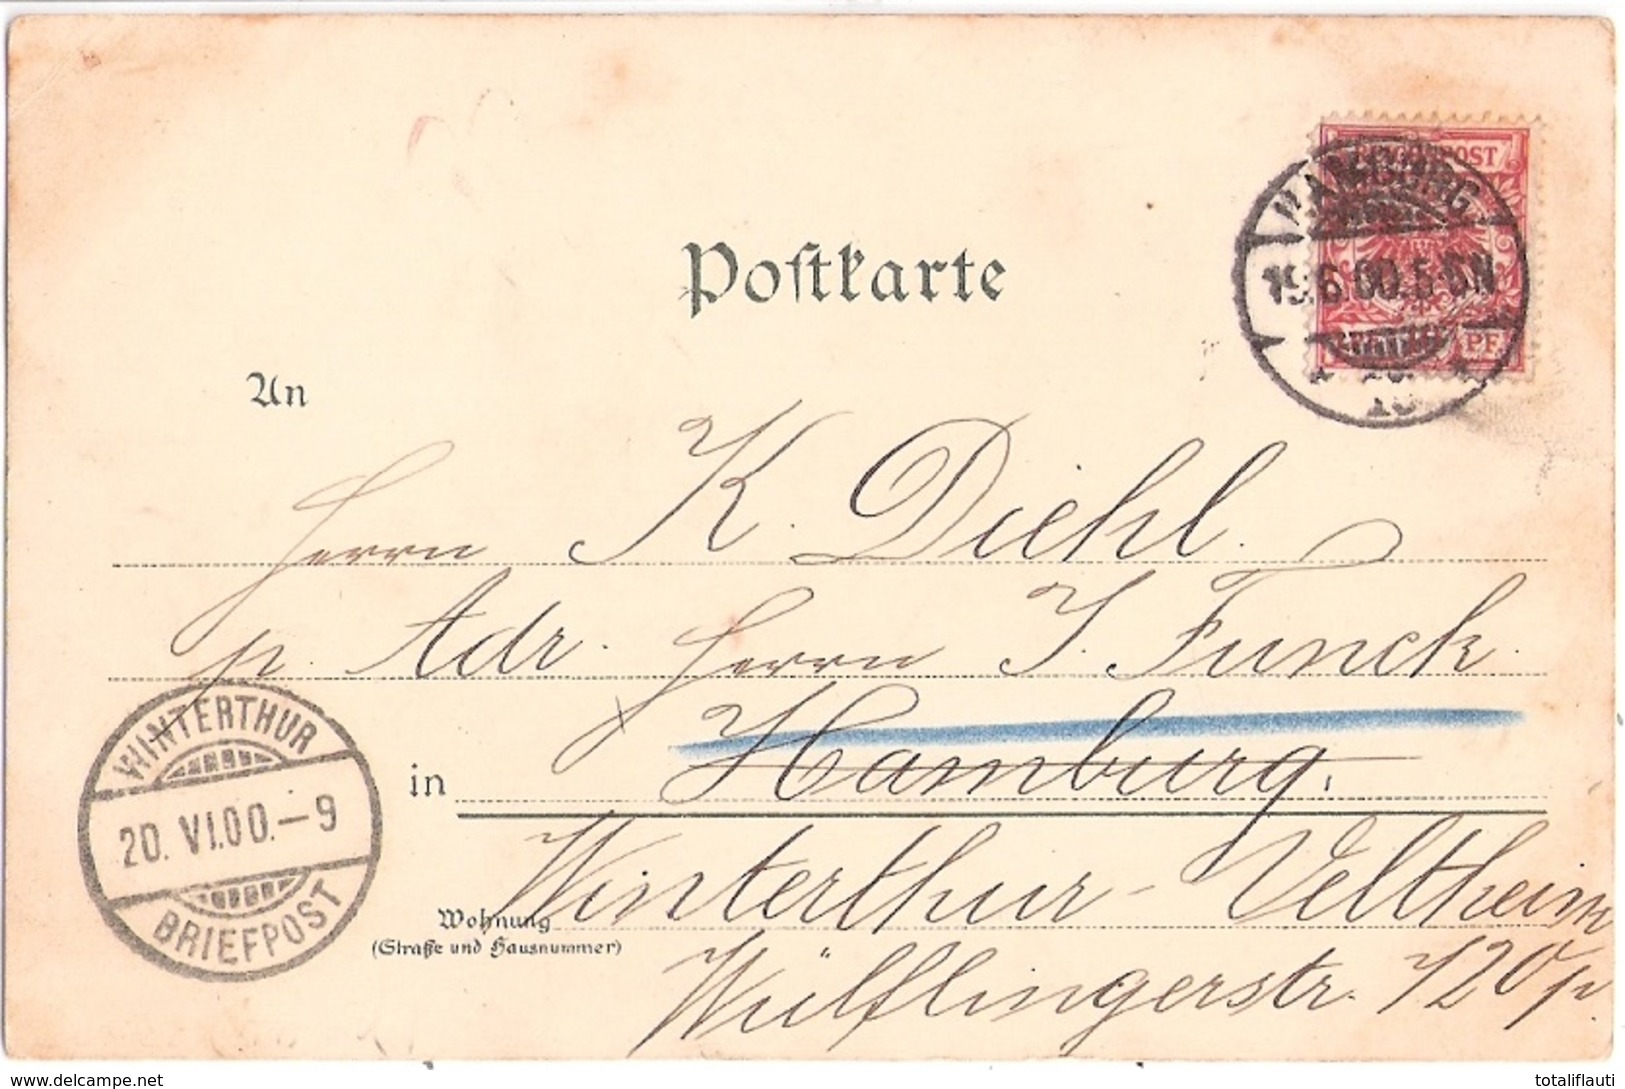 Postkarte
REICHSPOST
HAMBURG
19.6.00.5-6N
PF
An
Herrn K. Diehl.
p. Adr. Herrn J. Funck.
in Hamburg.
Winterthur - Veltheim
Wohnung
(Straße und Hausnummer)
Wülflingerstr. 120
WINTERTHUR
20. VI.00.-9
BRIEFPOST
www.delcampe.net
totaliflauti